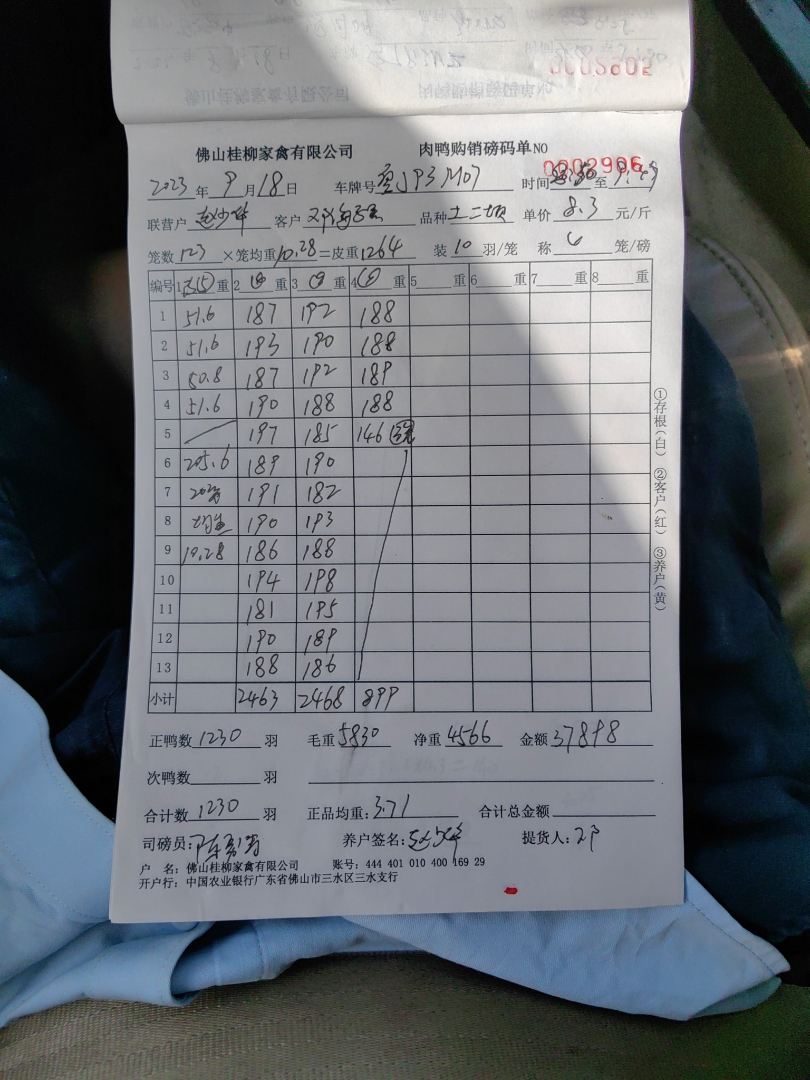 佛山桂柳家禽有限公司 肉鸭购销磅码单NO 0002906
2023年9月18日 车牌号 粤JP3M07 时间 至 9:49
联营户 客户 品种 土二 单价 8.3 元/斤
笼数 123 ×笼均重 10.28 =皮重 1264 装 10 羽/笼 称 6 笼/磅
编号 1 (5) 重 2 重 3 重 4 重 5 重 6 重 7 重 8 重
1 51.6 187 192 188
2 51.6 193 190 188
3 50.8 187 192 189
4 51.6 190 188 188
5 197 185 146
6 205.6 189 190
7 191 182
8 190 193
9 10.28 186 188
10 194 198
11 181 195
12 190 189
13 188 186
小计 2463 2468 899
正鸭数 1230 羽 毛重 5830 净重 4566 金额 37898
次鸭数 羽
合计数 1230 羽 正品均重: 3.71 合计总金额
司磅员: 养户签名: 提货人:
户 名: 佛山桂柳家禽有限公司 账号: 444 401 010 400 169 29
开户行: 中国农业银行广东省佛山市三水区三水支行
①存根(白) ②客户(红) ③养户(黄)